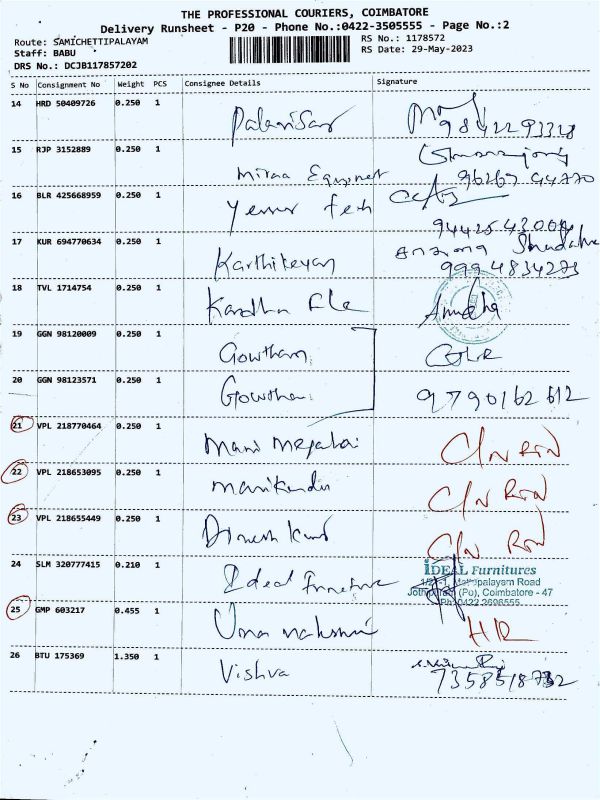 THE PROFESSIONAL COURIERS, COIMBATORE
Delivery Runsheet - P20 - Phone No.:0422-3505555 - Page No.:2
Route: SAMICHETTIPALAYAM RS No.: 1178572
Staff: BABU RS Date: 29-May-2023
DRS No.: DCJB117857202
S No Consignment No Weight PCS Consignee Details Signature
14 HRD 50409726 0.250 1 Palanisamy
9842293328
15 RJP 3152889 0.250 1
96267 44770
16 BLR 425668959 0.250 1
17 KUR 694770634 0.250 1 Karthikeyan
9994834273
18 TVL 1714754 0.250 1 Anudha
19 GGN 98120009 0.250 1 Gowtham
20 GGN 98123571 0.250 1 Gowtham 9790162612
21 VPL 218770464 0.250 1 Mani Megalai
22 VPL 218653095 0.250 1
23 VPL 218655449 0.250 1 Dinesh
24 SLM 320777415 0.210 1 Ideal Furniture
IDEAL Furnitures
Road
(Po), Coimbatore - 47
Ph: 0422 2606555
25 GMP 603217 0.455 1 Uma
26 BTU 175369 1.350 1 Vishva
7358518732